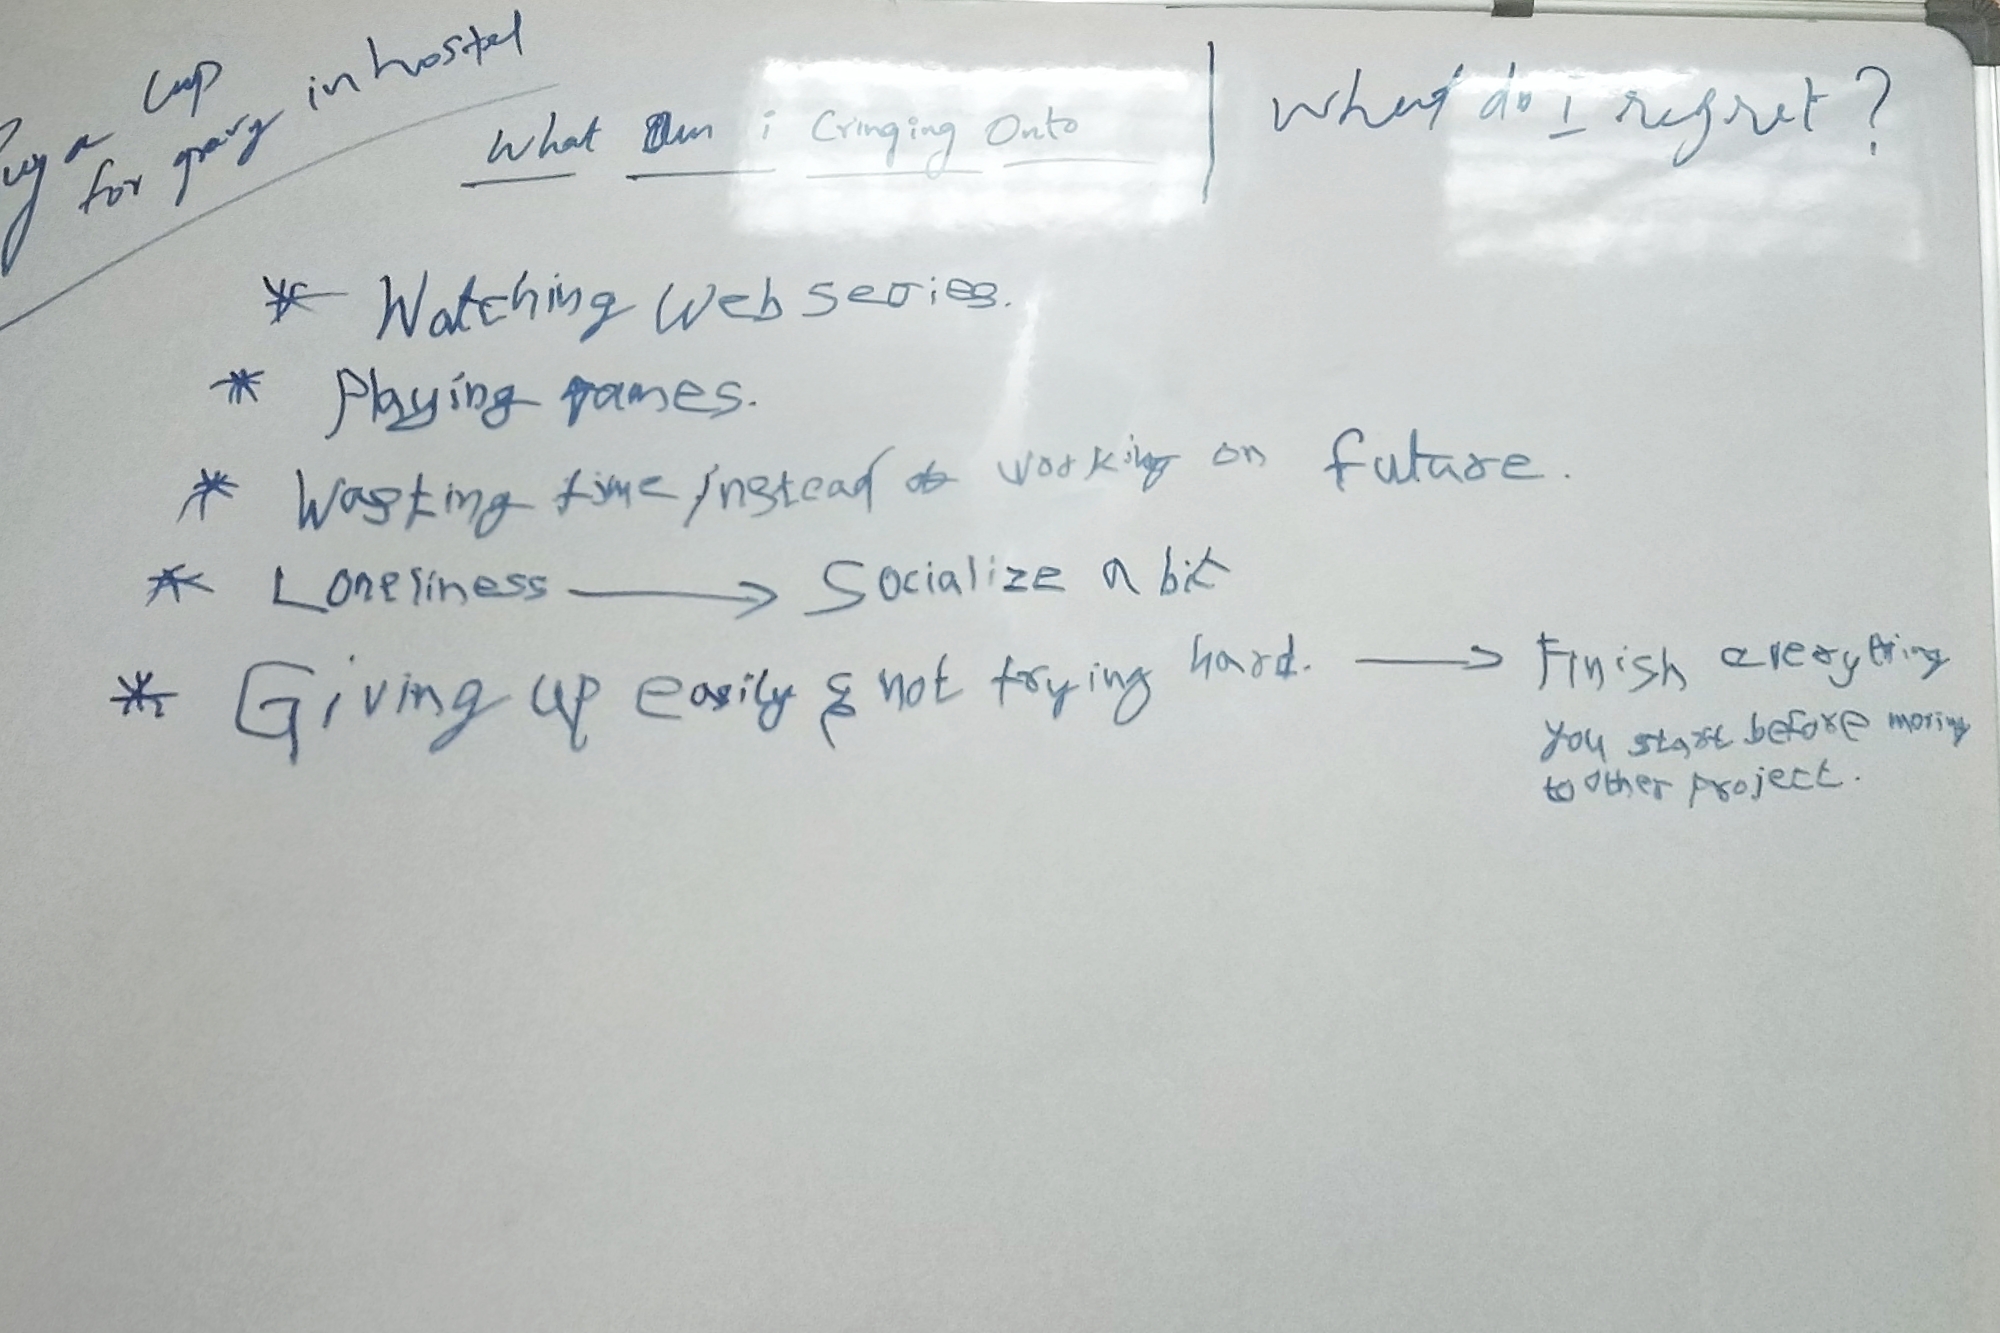 a cup
for gravy in hostel
What Am i Cringing Onto
What do I regret?
* Watching web series.
* Playing games.
* Wasting time instead of working on future.
* Loneliness → Socialize a bit
* Giving up easily & not trying hard. → Finish everything
you start before moving
to other project.